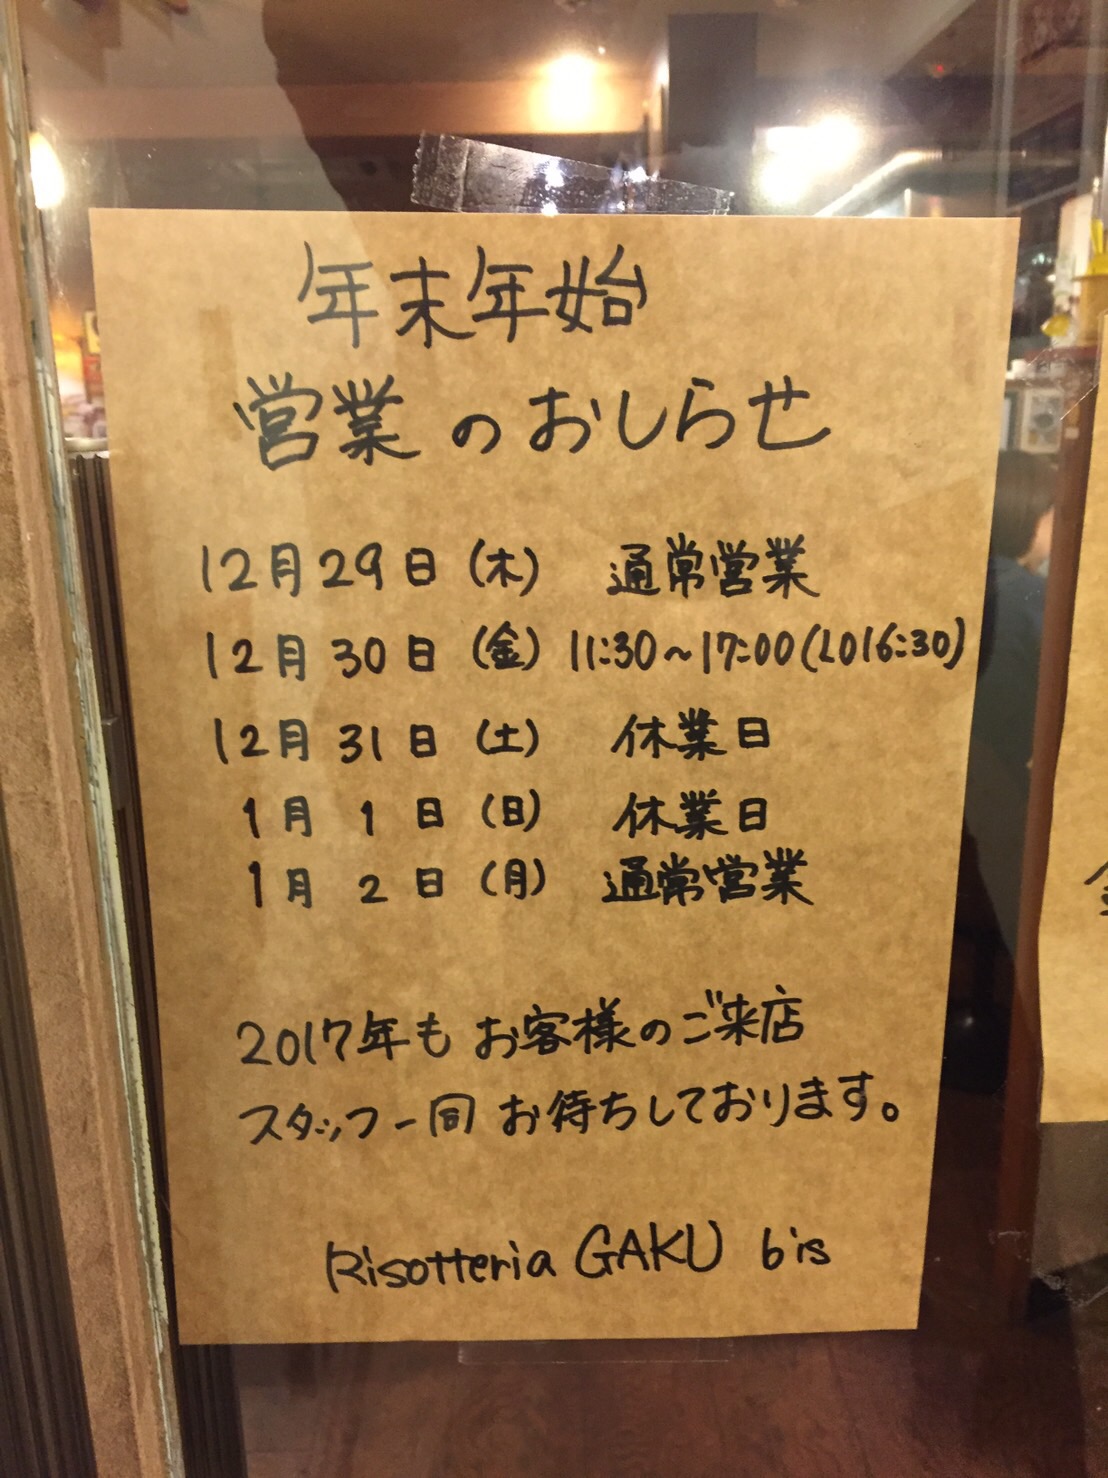 年末年始
営業のおしらせ
12月29日(木) 通常営業
12月30日(金) 11:30~17:00(LO16:30)
12月31日(土) 休業日
1月1日(日) 休業日
1月2日(月) 通常営業
2017年もお客様のご来店
スタッフ一同お待ちしております。
Risotteria GAKU bis